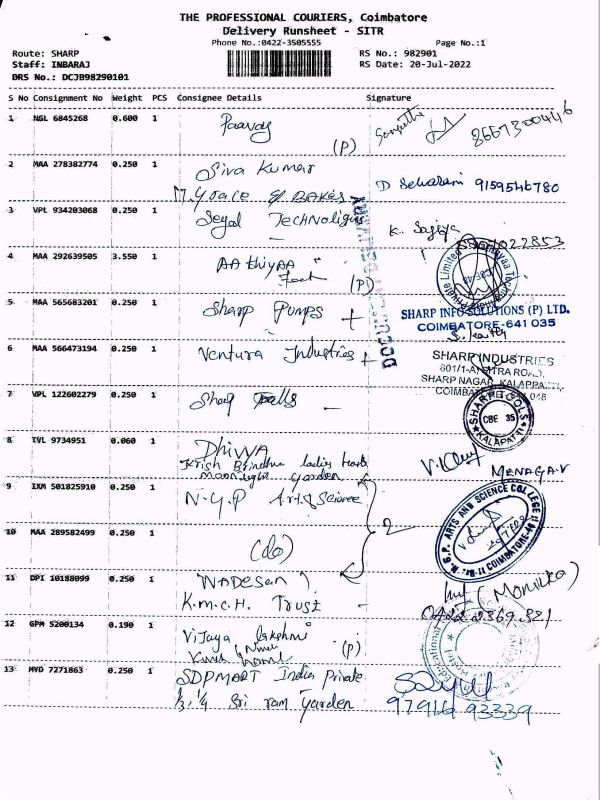 THE PROFESSIONAL COURIERS, Coimbatore
Delivery Runsheet - SITR
Phone No.:0422-3505555 Page No.:1
Route: SHARP RS No.: 982901
Staff: INBARAJ RS Date: 20-Jul-2022
DRS No.: DCJB98290101
S No Consignment No Weight PCS Consignee Details Signature
1 NGL 6845268 0.600 1 Paavay (P) 8667300446
2 MAA 278382774 0.250 1 Siva Kumar
M. Grace of BAKes 9159546780
3 VPL 934203068 0.250 1 Seyal TECHNOligies K.
4 MAA 292639505 3.550 1 AAthiyaa Tech (P)
5 MAA 565683201 0.250 1 Sharp Pumps
SHARP INFO SOLUTIONS (P) LTD.
COIMBATORE-641 035
6 MAA 566473194 0.250 1 Ventura Industries
SHARP INDUSTRIES
SHARP NAGAR, KALAPPATTI,
7 VPL 122602279 0.250 1 Sharp
SHARP TOOLS
CBE 35
KALAPATTI
8 TVL 9734951 0.060 1 Dhiwa
Krish Brindha ladies
moonlight garden MENAGA.V
9 IXM 501825910 0.250 1 N.G.P Arts & Science
N.G.P. ARTS AND SCIENCE COLLEGE
COIMBATORE
10 MAA 289582499 0.250 1 (do) 2
11 DPI 10188099 0.250 1 NADESan
K.m.c.H. Trust (Monikka)
12 GPM 5200134 0.190 1 Vijaya lakshmi
(P)
13 MYD 7271863 0.250 1 SDPMART India Private
Sri ram garden